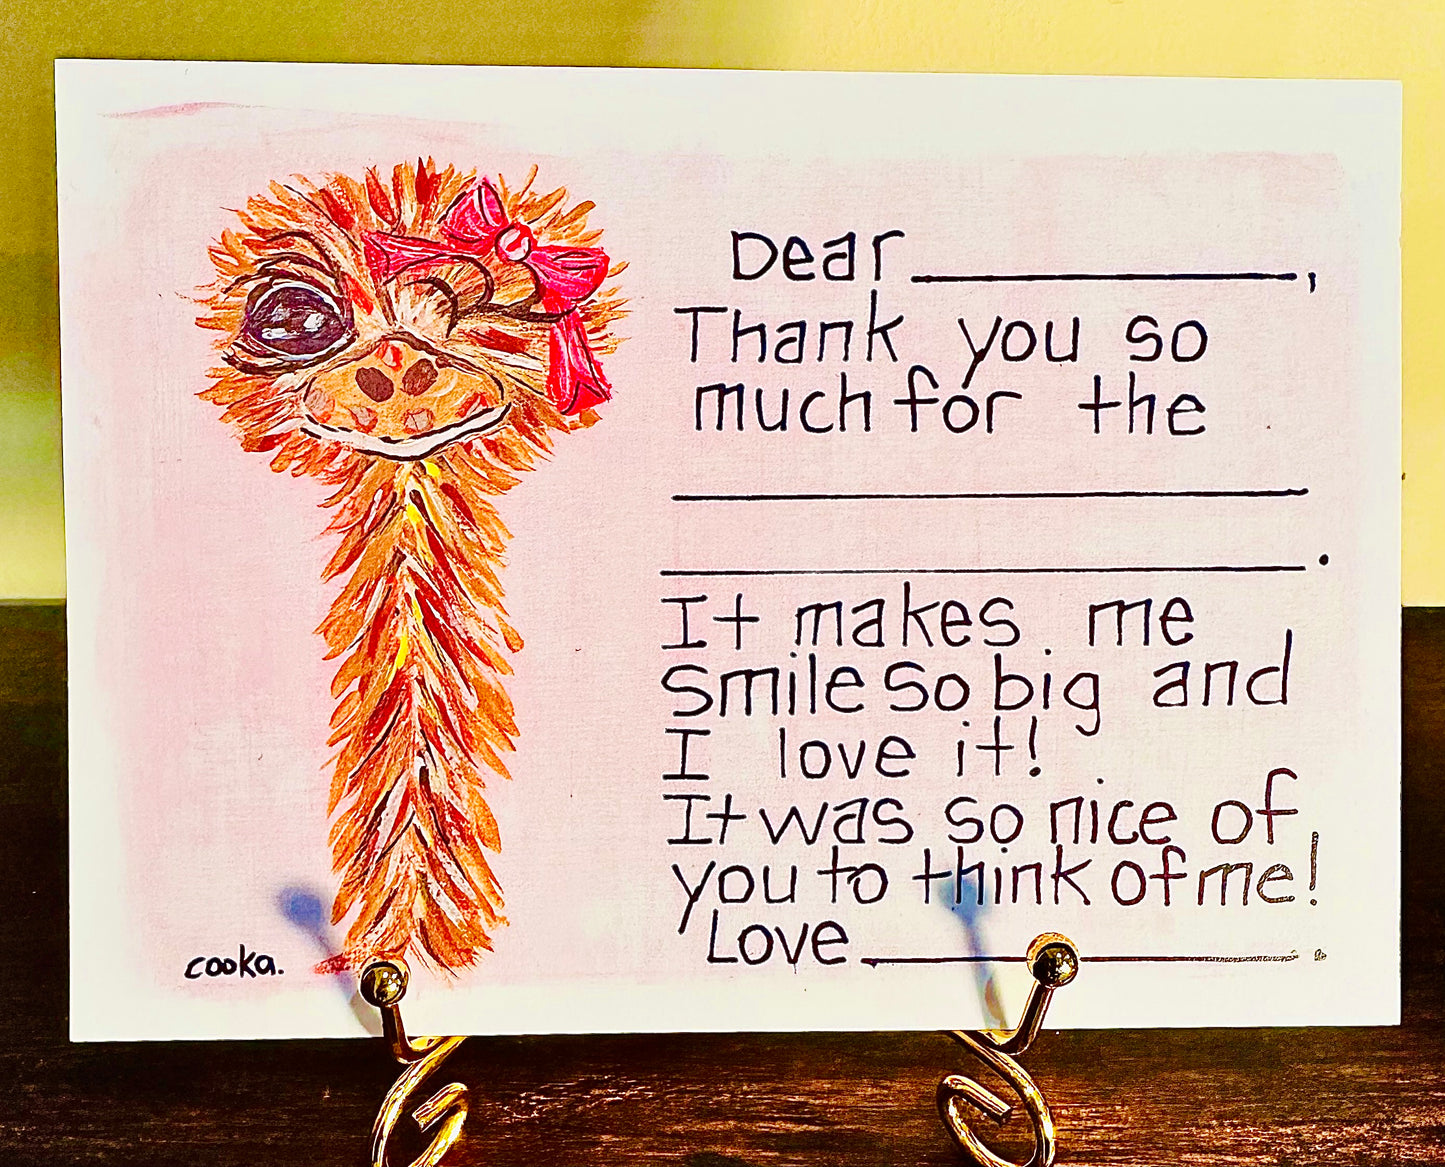 Dear ____________,
Thank you so
much for the
____________________
____________________.
It makes me
smile so big and
I love it!
It was so nice of
you to think of me!
Love ______________.
cooka.